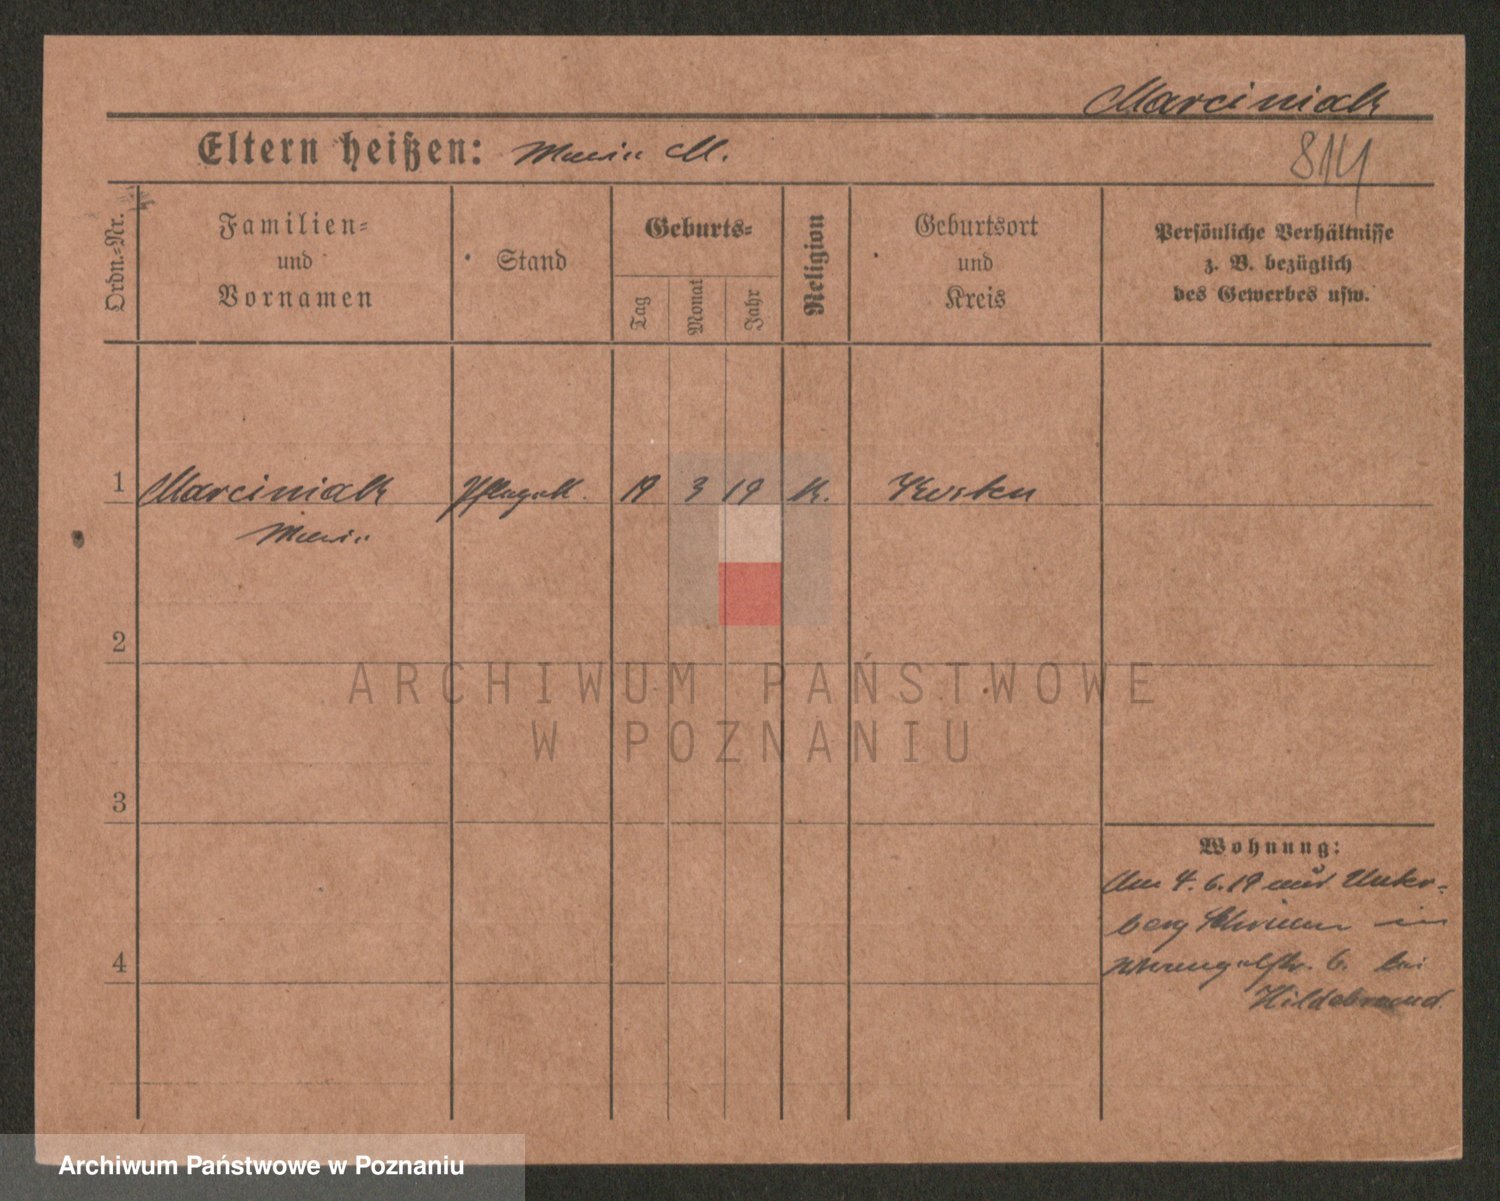 Marciniak
814
Eltern heißen: Maria M.
Ordn.-Nr.
Familien-
und
Vornamen
Stand
Geburts-
Tag
Monat
Jahr
Religion
Geburtsort
und
Kreis
Persönliche Verhältnisse
z. B. bezüglich
des Gewerbes usw.
1 Marciniak 19 3 19 K. Kosten
Maria
2
3
4
Wohnung:
Am 4. 6. 19 aus Unter-
berg Schrimm in
Wrangelstr. 6. bei
Hildebrand.
ARCHIWUM PAŃSTWOWE
W POZNANIU
Archiwum Państwowe w Poznaniu